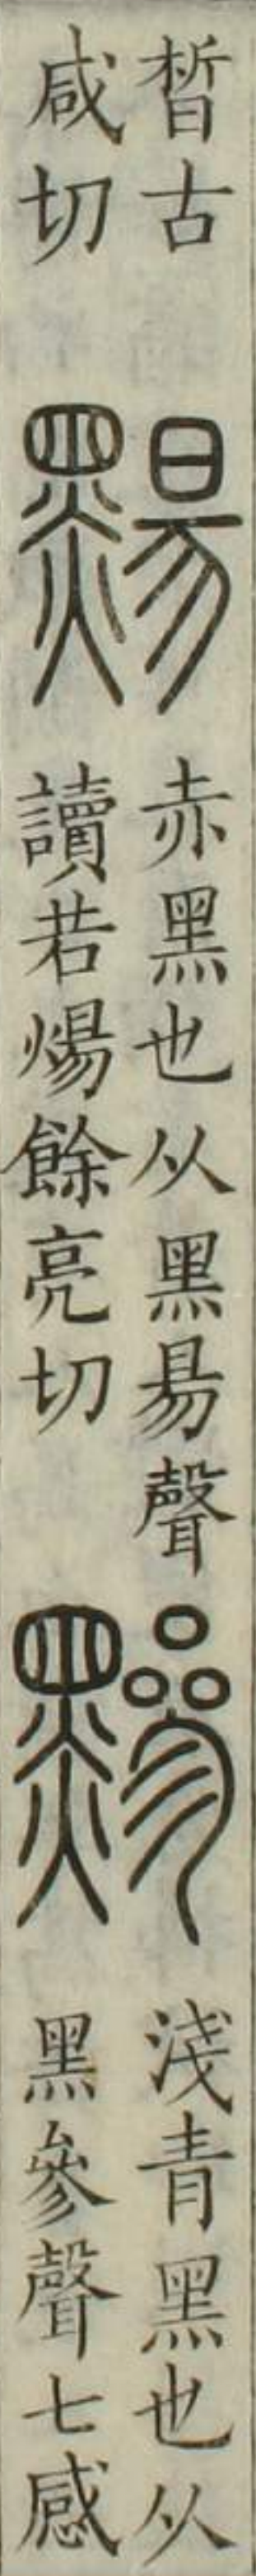 晳古
咸切
䵮
赤黑也从黑昜聲
讀若煬餘亮切
黲
淺青黑也从
黑參聲七感